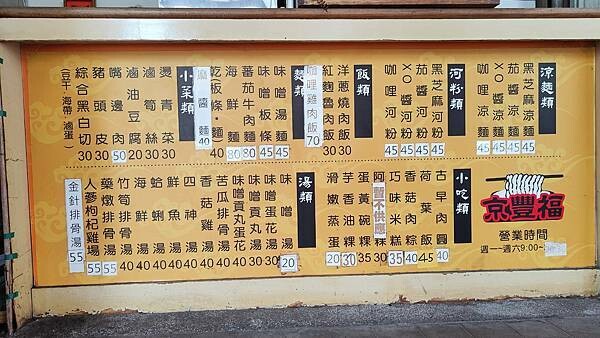 涼麵類
黑芝麻涼麵 45
茄醬涼麵 45
XO醬涼麵 45
咖哩涼麵 45
河粉類
黑芝麻河粉 45
茄醬河粉 45
XO醬河粉 45
咖哩河粉 45
飯類
洋蔥燒肉飯 30
紅麴魯肉飯 30
咖哩雞肉飯 70
麵類
味噌湯麵 45
味噌板條 45
蕃茄牛肉麵 80
海鮮麵 80
乾(板條、麵) 40
麻醬麵 40
小菜類
燙青菜 30
滷筍絲 30
滷油豆腐 20
嘴邊肉 50
豬頭皮 30
綜合黑白切 30
(豆干,海帶,滷蛋)
京豐福
營業時間
週一~週六9:00~
小吃類
古早肉圓 40
荷葉飯 45
香菇肉粽 40
巧味米糕 35
阿 暫不供應 30
蛋黃碗粿 35
芋香油粿 30
滑嫩蒸蛋 20
湯類
味噌湯 20
味噌蛋花湯 30
味噌貢丸湯 30
味噌貢丸蛋花 40
苦瓜排骨湯 40
香菇雞湯 40
四神湯 40
鮮魚湯 40
蛤蜊湯 40
海鮮湯 40
竹筍排骨湯 40
藥燉排骨湯 55
人蔘枸杞雞場 55
金針排骨湯 55